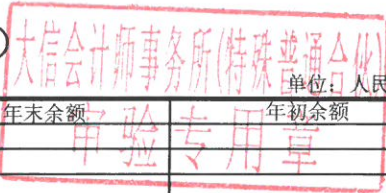 大信会计师事务所(特殊普通合伙)
单位：人民
年末余额 年初余额
审验专用章